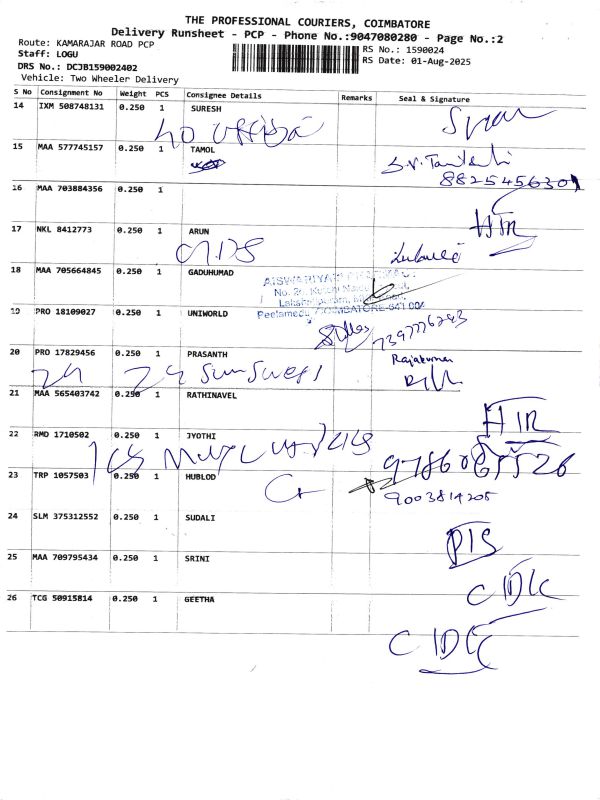 THE PROFESSIONAL COURIERS, COIMBATORE
Delivery Runsheet - PCP - Phone No.:9047080280 - Page No.:2
Route: KAMARAJAR ROAD PCP
Staff: LOGU
DRS No.: DCJB159002402
Vehicle: Two Wheeler Delivery
RS No.: 1590024
RS Date: 01-Aug-2025
S No Consignment No Weight PCS Consignee Details Remarks Seal & Signature
14 IXM 508748131 0.250 1 SURESH
15 MAA 577745157 0.250 1 TAMOL
8825456301
16 MAA 703884356 0.250 1
HIR
17 NKL 8412773 0.250 1 ARUN
18 MAA 705664845 0.250 1 GADUHUMAD
Peelamedu, COIMBATORE-641 004
19 PRO 18109027 0.250 1 UNIWORLD
7397776293
20 PRO 17829456 0.250 1 PRASANTH
Rajakumar
21 MAA 565403742 0.250 1 RATHINAVEL
HIR
22 RMD 1710502 0.250 1 JYOTHI
23 TRP 1057503 0.250 1 HUBLOD
9003814205
24 SLM 375312552 0.250 1 SUDALI
25 MAA 709795434 0.250 1 SRINI
26 TCG 50915814 0.250 1 GEETHA